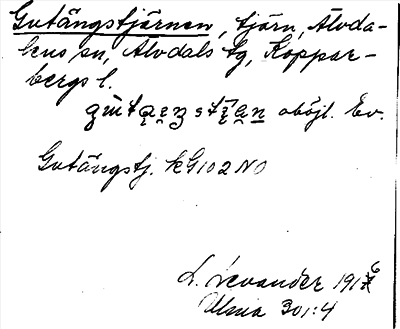 Gutängstjärnen, tjärn, Älvda-
lens sn, Älvdals tg, Koppar-
bergs l.
oböjl. Ev.
Gutängstj. kG102 NO
L. Levander 1916
Ulma 301:4